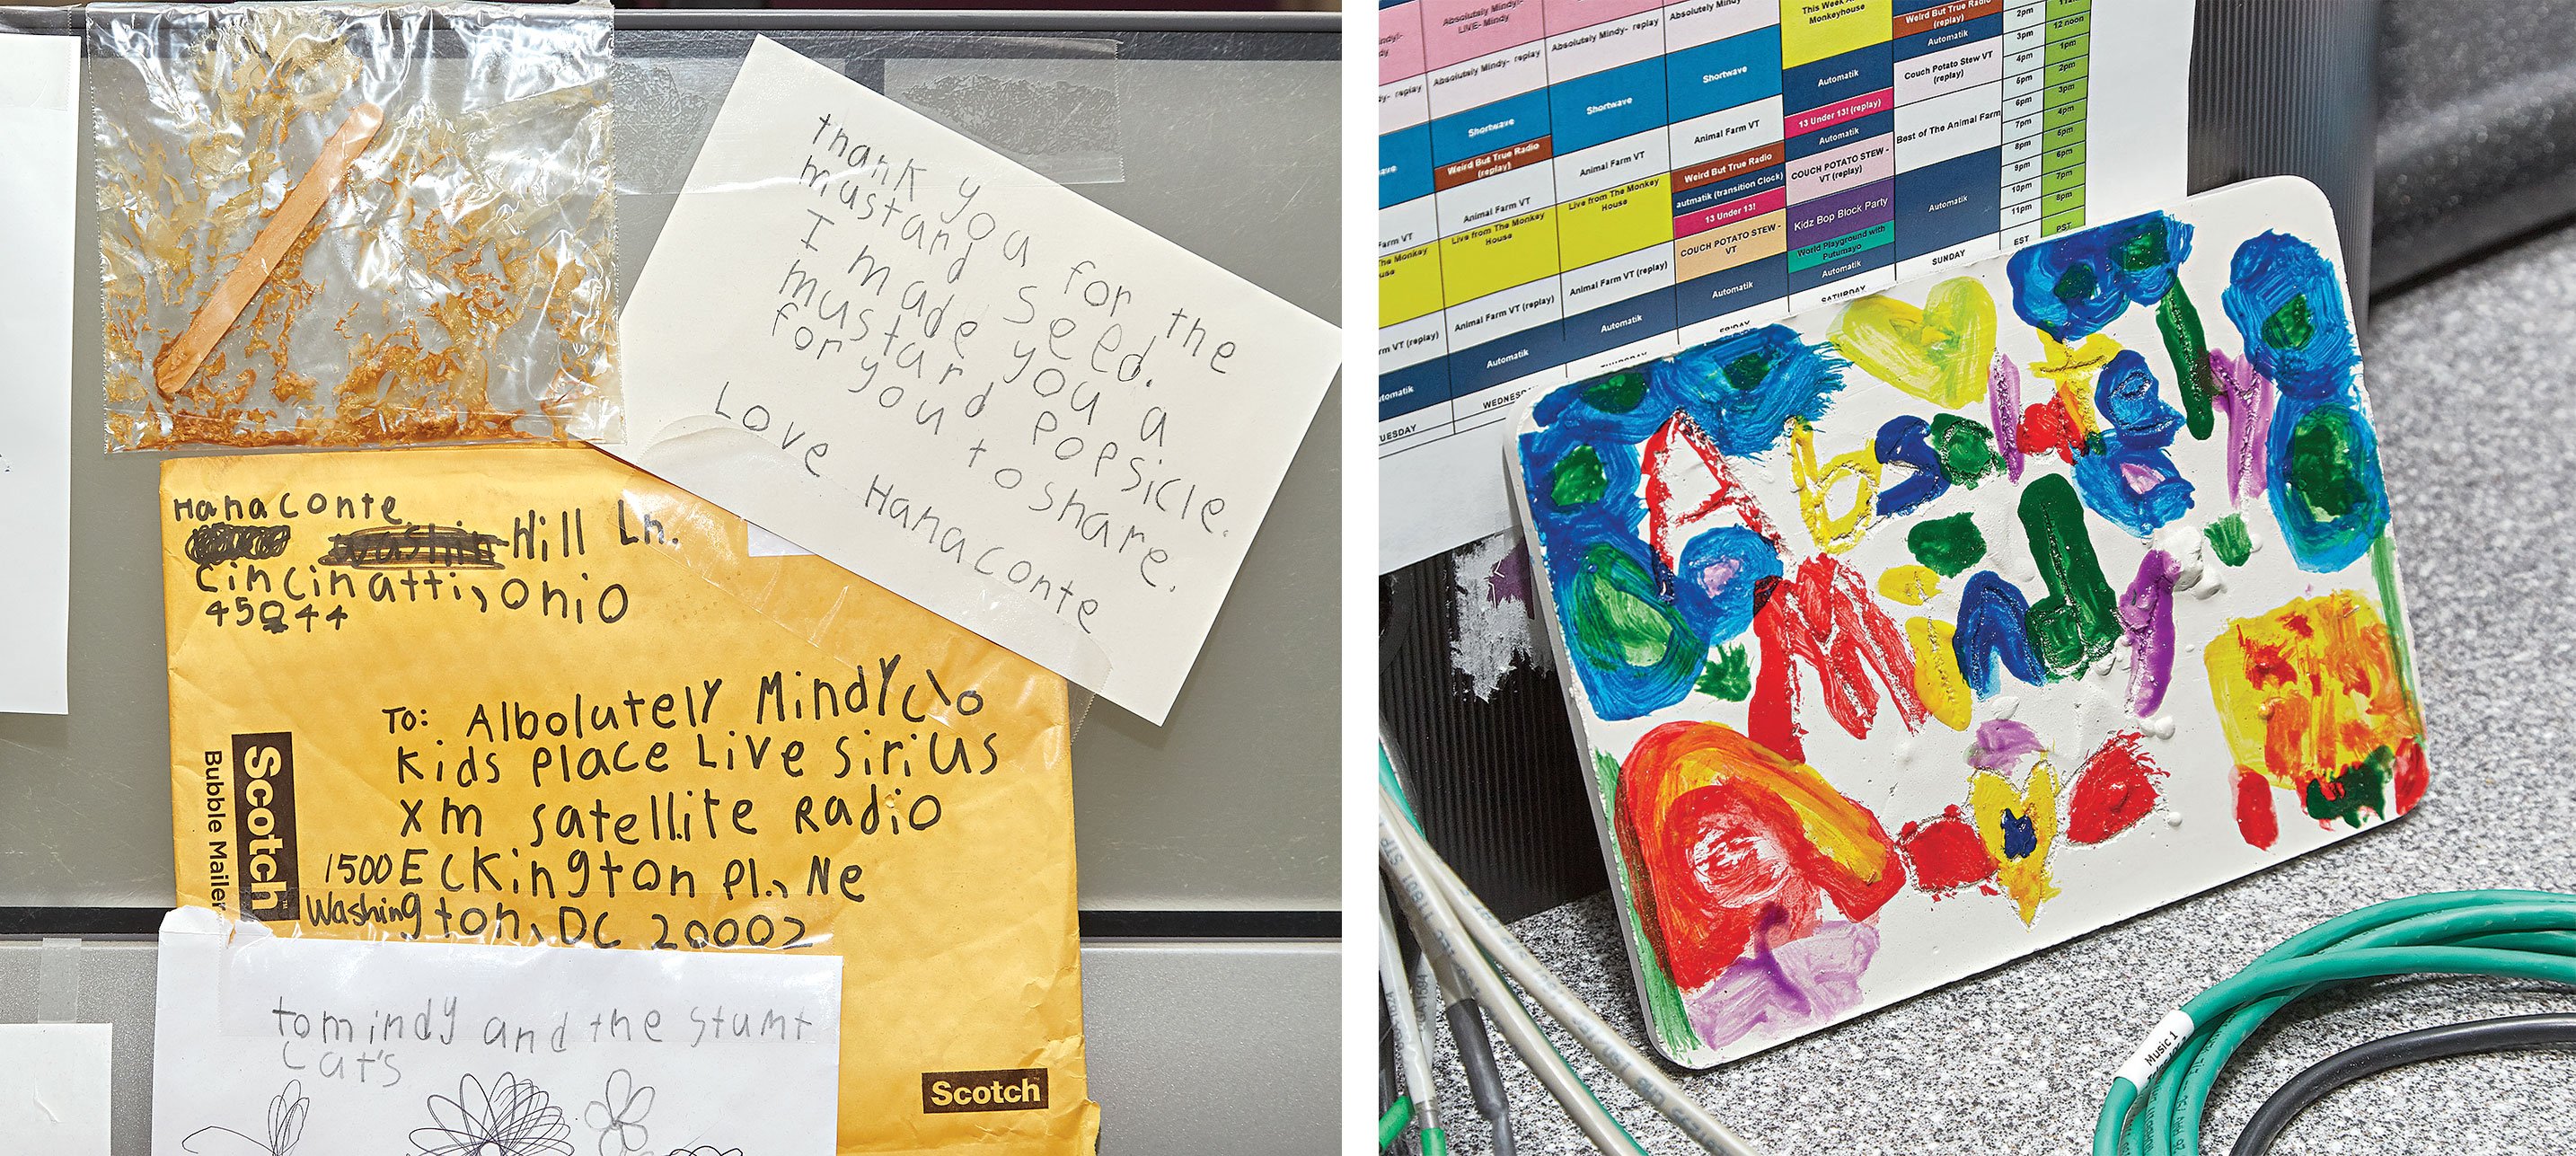 thank you for the
mustand seed.
I made you a
mustard popsicle
for you to share.
Love Hana Conte
Hana Conte
Hill Ln.
Cincinatti, Ohio
45244
To: Albolutely Mindy c\o
Kids Place Live Sirius
XM satellite Radio
1500 Eckington Pl., Ne
Washington, DC 20002
Scotch™
Bubble Mailer
Scotch
to mindy and the stumt
Cat's
Absolutely Mindy!-
LIVE- Mindy
Absolutely Mindy- replay
Shortwave
Weird But True Radio
(replay)
Animal Farm VT
Live from The Monkey
House
Animal Farm VT (replay)
Automatik
WEDNES
Absolutely Mindy- replay
Shortwave
Animal Farm VT
Live from The Monkey
House
Animal Farm VT (replay)
Automatik
THURSDAY
Absolutely Mindy
Shortwave
Animal Farm VT
Weird But True Radio
autmatik (transition Clock)
13 Under 13!
COUCH POTATO STEW -
VT
Automatik
FRIDAY
This Week
Monkeyhouse
Automatik
13 Under 13! (replay)
Automatik
COUCH POTATO STEW -
VT (replay)
Kidz Bop Block Party
World Playground with
Putumayo
Automatik
SATURDAY
Weird But True Radio
(replay)
Automatik
Couch Potato Stew VT
(replay)
Best of The Animal Farm
Automatik
SUNDAY
2pm
3pm
4pm
5pm
6pm
7pm
8pm
9pm
10pm
11pm
EST
12 noon
1pm
2pm
3pm
4pm
5pm
6pm
7pm
8pm
PST
UESDAY
Absolutely
Mindy
Music 1